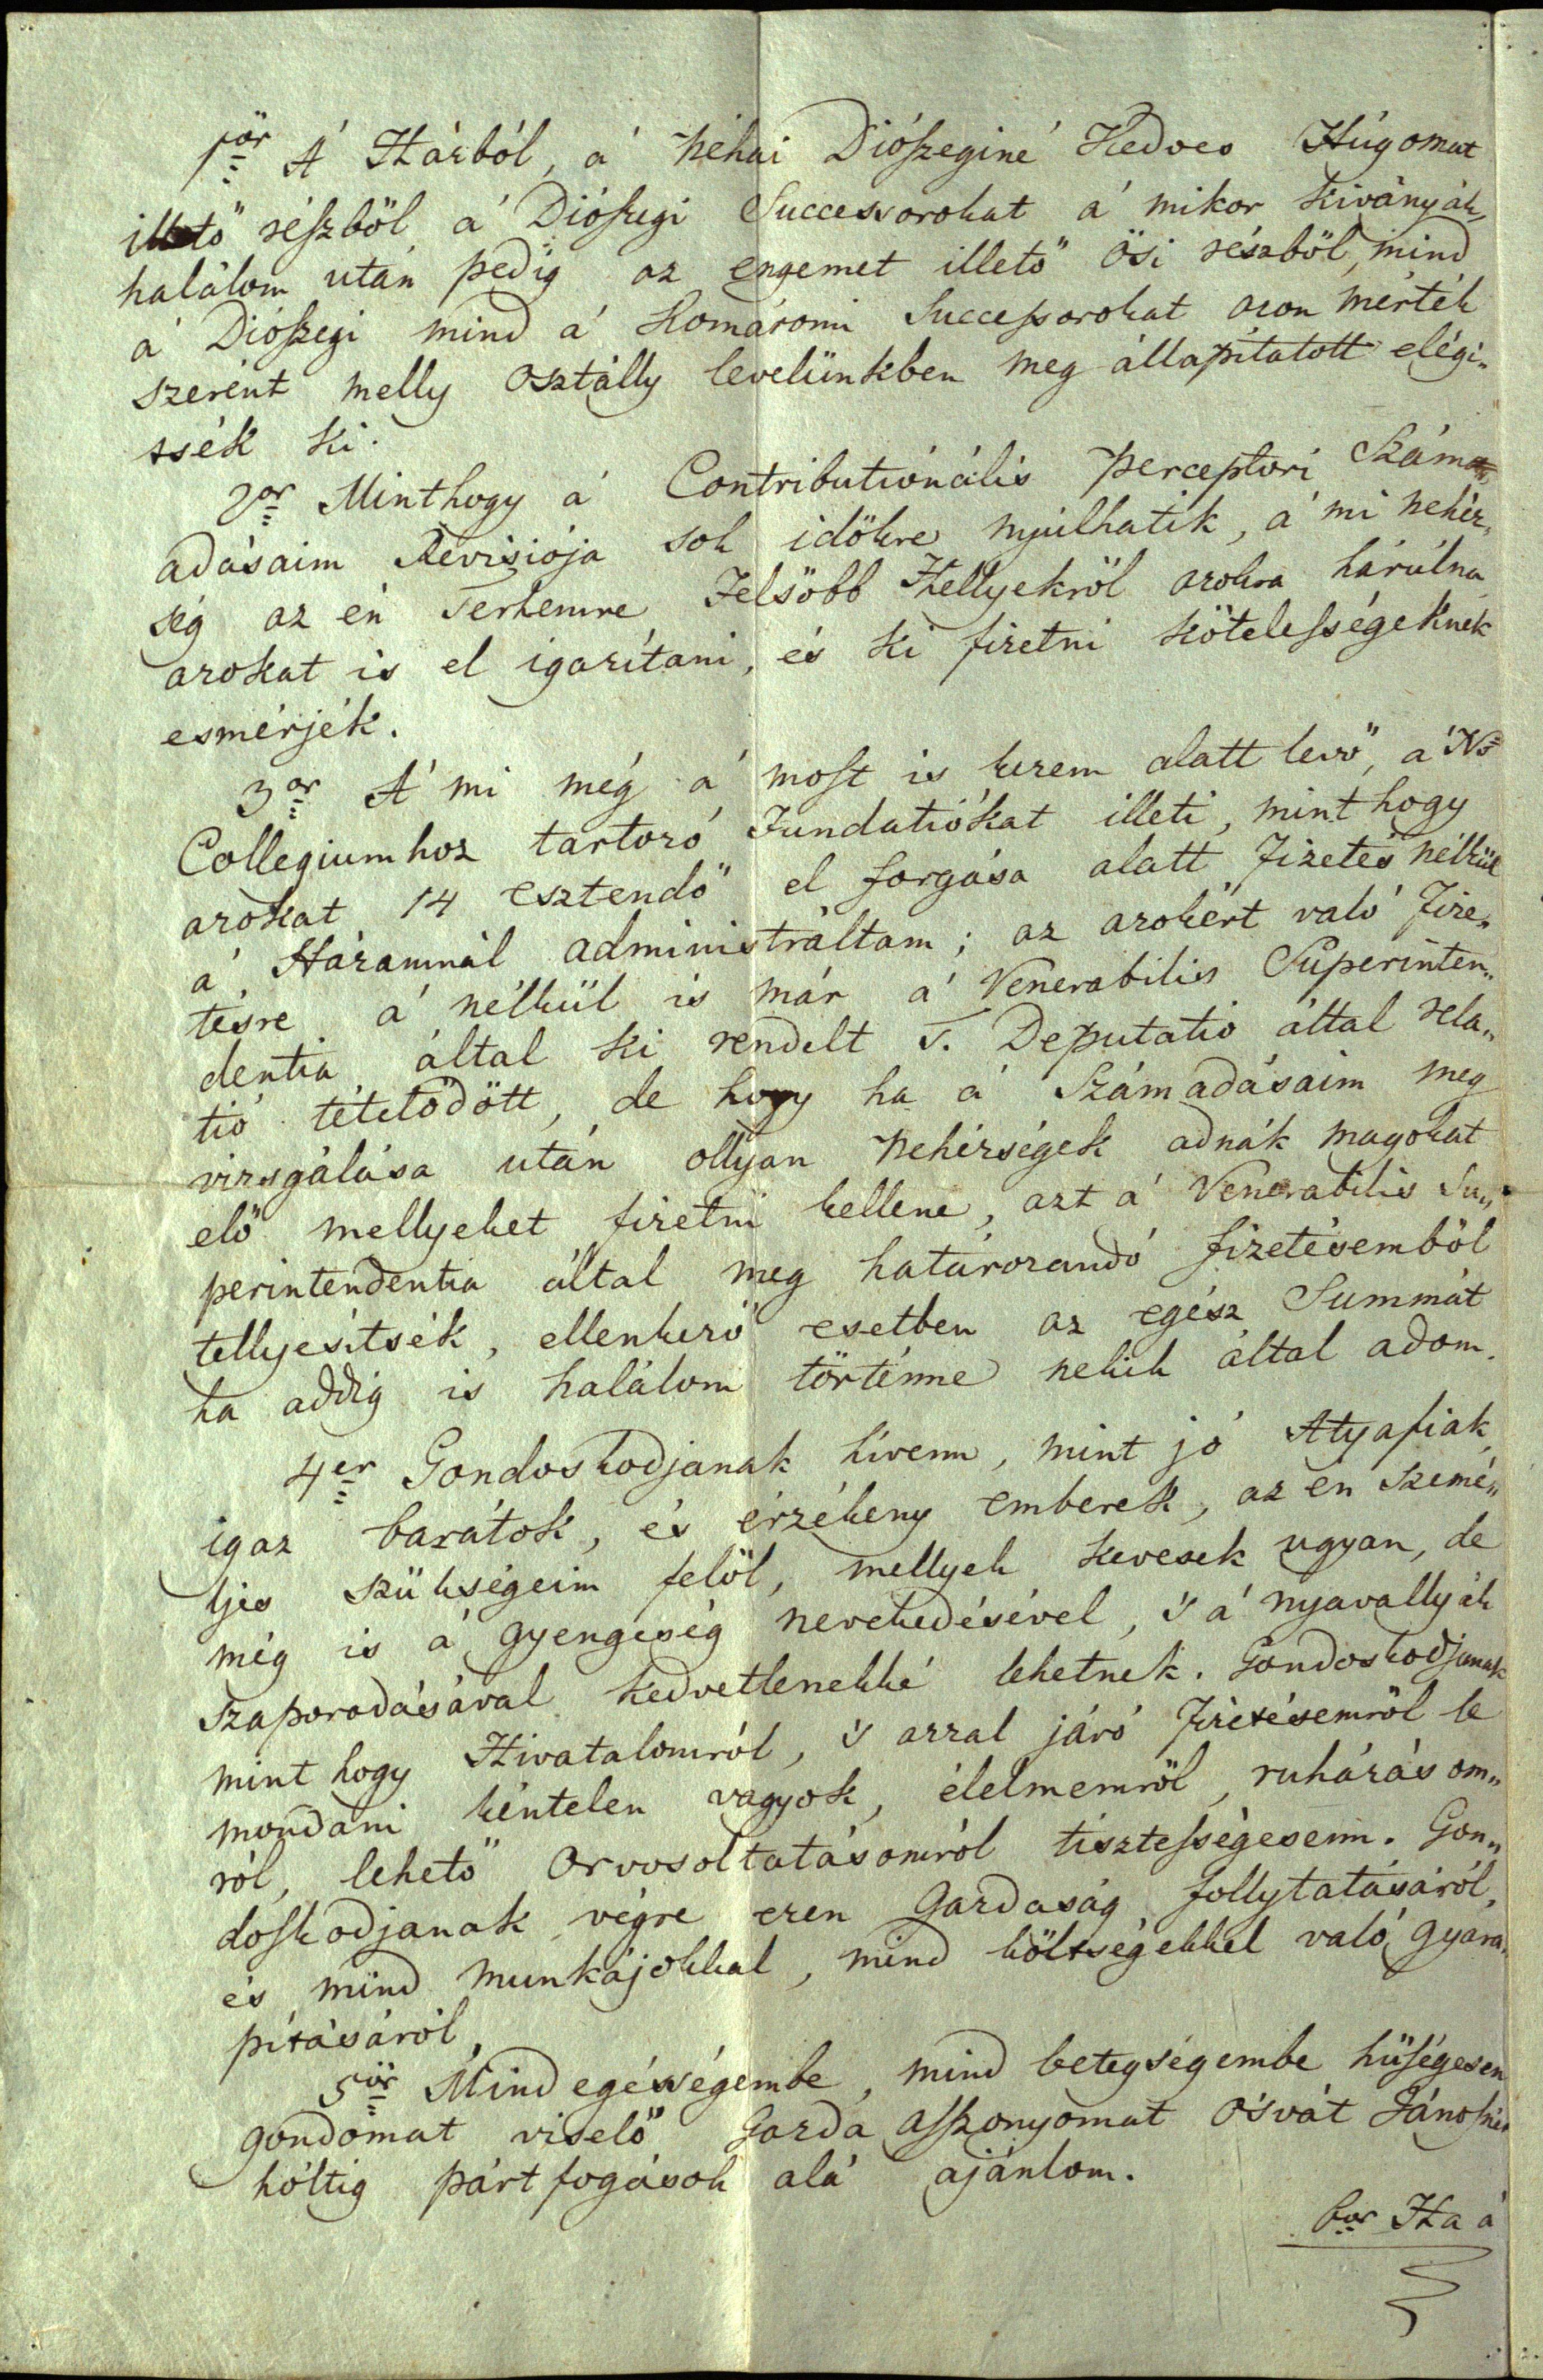 1ör A' Házból, a' néhai Diószeginé Kedves Húgomat
illető részböl a' Diószegi Successorokat a' mikor kivánják,
halálom után pedig az engemet illető ösi részböl, mind
a' Diószegi mind a' Komáromi Successorokat azon mérték
szerént melly osztálly levelünkben meg állapitatott elégi„
tsék ki.
2or Minthogy a' Contributionális perceptori Szám„
adásaim Revisiója sok időkre nyúlhatik, a' mi nehéz„
ség az én Terhemre Felsöbb Hellyekröl azokra hárúlna
azokat is el igazítani, és ki fizetni kötelességeknek
esmérjék.
3or A' mi még a' most is kezem alatt levő, a' Ns
Collegiumhoz tartozó Fundatiókat illeti, mint hogy
azokat 14 esztendő el forgása alatt Fizetés nélkül
a' Házamnál administráltam; az azokért való Fize„
tésre a' nélkül is már a' Venerabilis Superinten„
dentia által ki rendelt T. Deputatio által rela„
tió tétetődött, de hogy ha a' Szám adásaim meg
vizsgálása után ollyan nehézségek adnák magokat
elö mellyeket fizetni kellene, azt a' Venerabilis Su„
perintendentia által meg határozandó fizetésemböl
tellyesítsék, ellenkező esetben az egész Summát
ha addig is halálom történne nekik által adom.
4er Gondoskodjanak hívenn, mint jó Atyafiak,
igaz barátok, és érzékeny emberek, az én Szemé„
lyes szükségeim felöl, mellyek kevesek ugyan, de
még is a' gyengeség nevekedésével, 's a' nyavallyák
szaporodásával kedvetlenekké lehetnek. Gondoskodjanak
mint hogy Hivatalomról, 's azzal járó Fizetésemröl le
mondani kéntelen vagyok, élelmemröl, ruházásom„
ról, lehető Orvosoltatásomról tisztességesenn. Gon„
doskodjanak végre ezen Gazdaság follytatásáról,
és mind munkájokkal, mind költségekkel való gyara„
pitásáról,
5ör Mind egésségembe, mind betegségembe hűségesen
gondomat viselő Gazda Asszonyomat Osvát Jánosnét
hóltig párt fogások alá ajánlom.
6or Ha a'